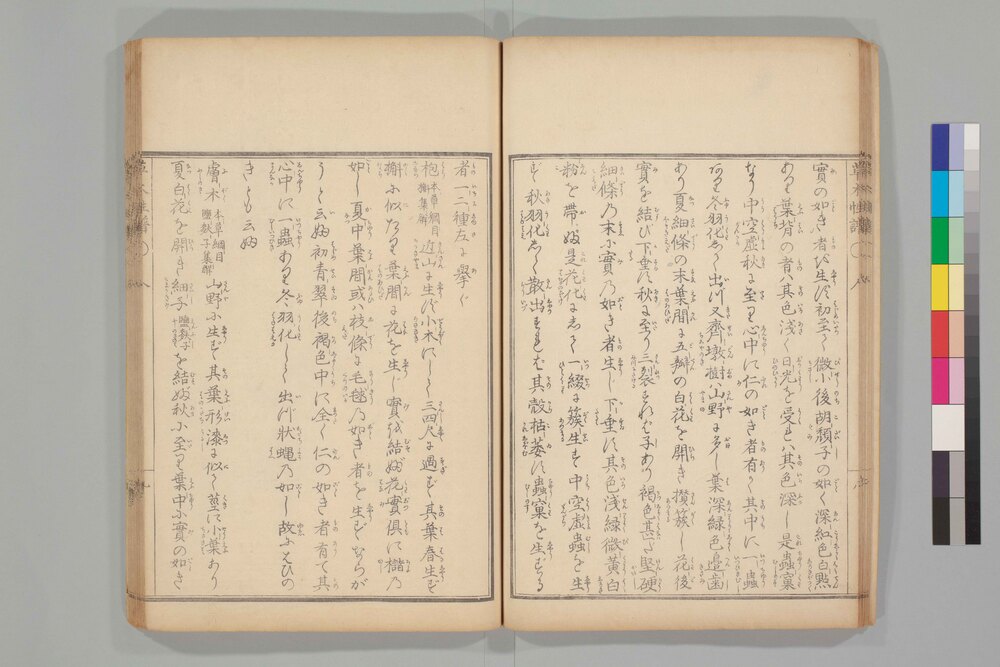 實の如き者を生ず初至て微小後胡頽子の如く深紅色白點
あり葉背の者ハ其色淺く日光を受れハ其色深し是蟲窠
なり中空虚秋に至り心中に仁の如き者有て其中に一蟲
ありて冬羽化して出川又齊墩樹ハ山野に多し葉深緑色邉歯
あり夏細條の末葉間に五瓣の白花を開き攅簇し花後
實を結び下垂す秋に至り三裂それに子あり褐色甚だ堅硬
細條乃末に實乃如き者生し下垂す其色淺緑微黄白
粉を帶ぬ是花化にして一綴に簇生す中空虚蟲を生
ず秋羽化して散出すれば其殻枯萎す蟲窠を生ずる
者一二種左に擧ぐ
枹 本草綱目 槲集觧 近山に生ず小木にして三四尺に過ず其葉春生ず
槲に似たり葉間に花を生じ實を結ぶ花實倶に櫧乃
如し夏中葉間或ハ枝條に毛毬乃如き者を生ずならが
うと云ぬ初青翠後褐色中に全く仁の如き者有て其
心中に一蟲あり冬羽化して出川狀蠅乃如し故にえひの
きとも云ぬ
膚木 本草綱目 鹽麩子集觧 山野に生ず其葉形漆に似て莖に小葉あり
夏白花を開き細子 鹽麩子 を結ぬ秋に至り葉中に實の如き